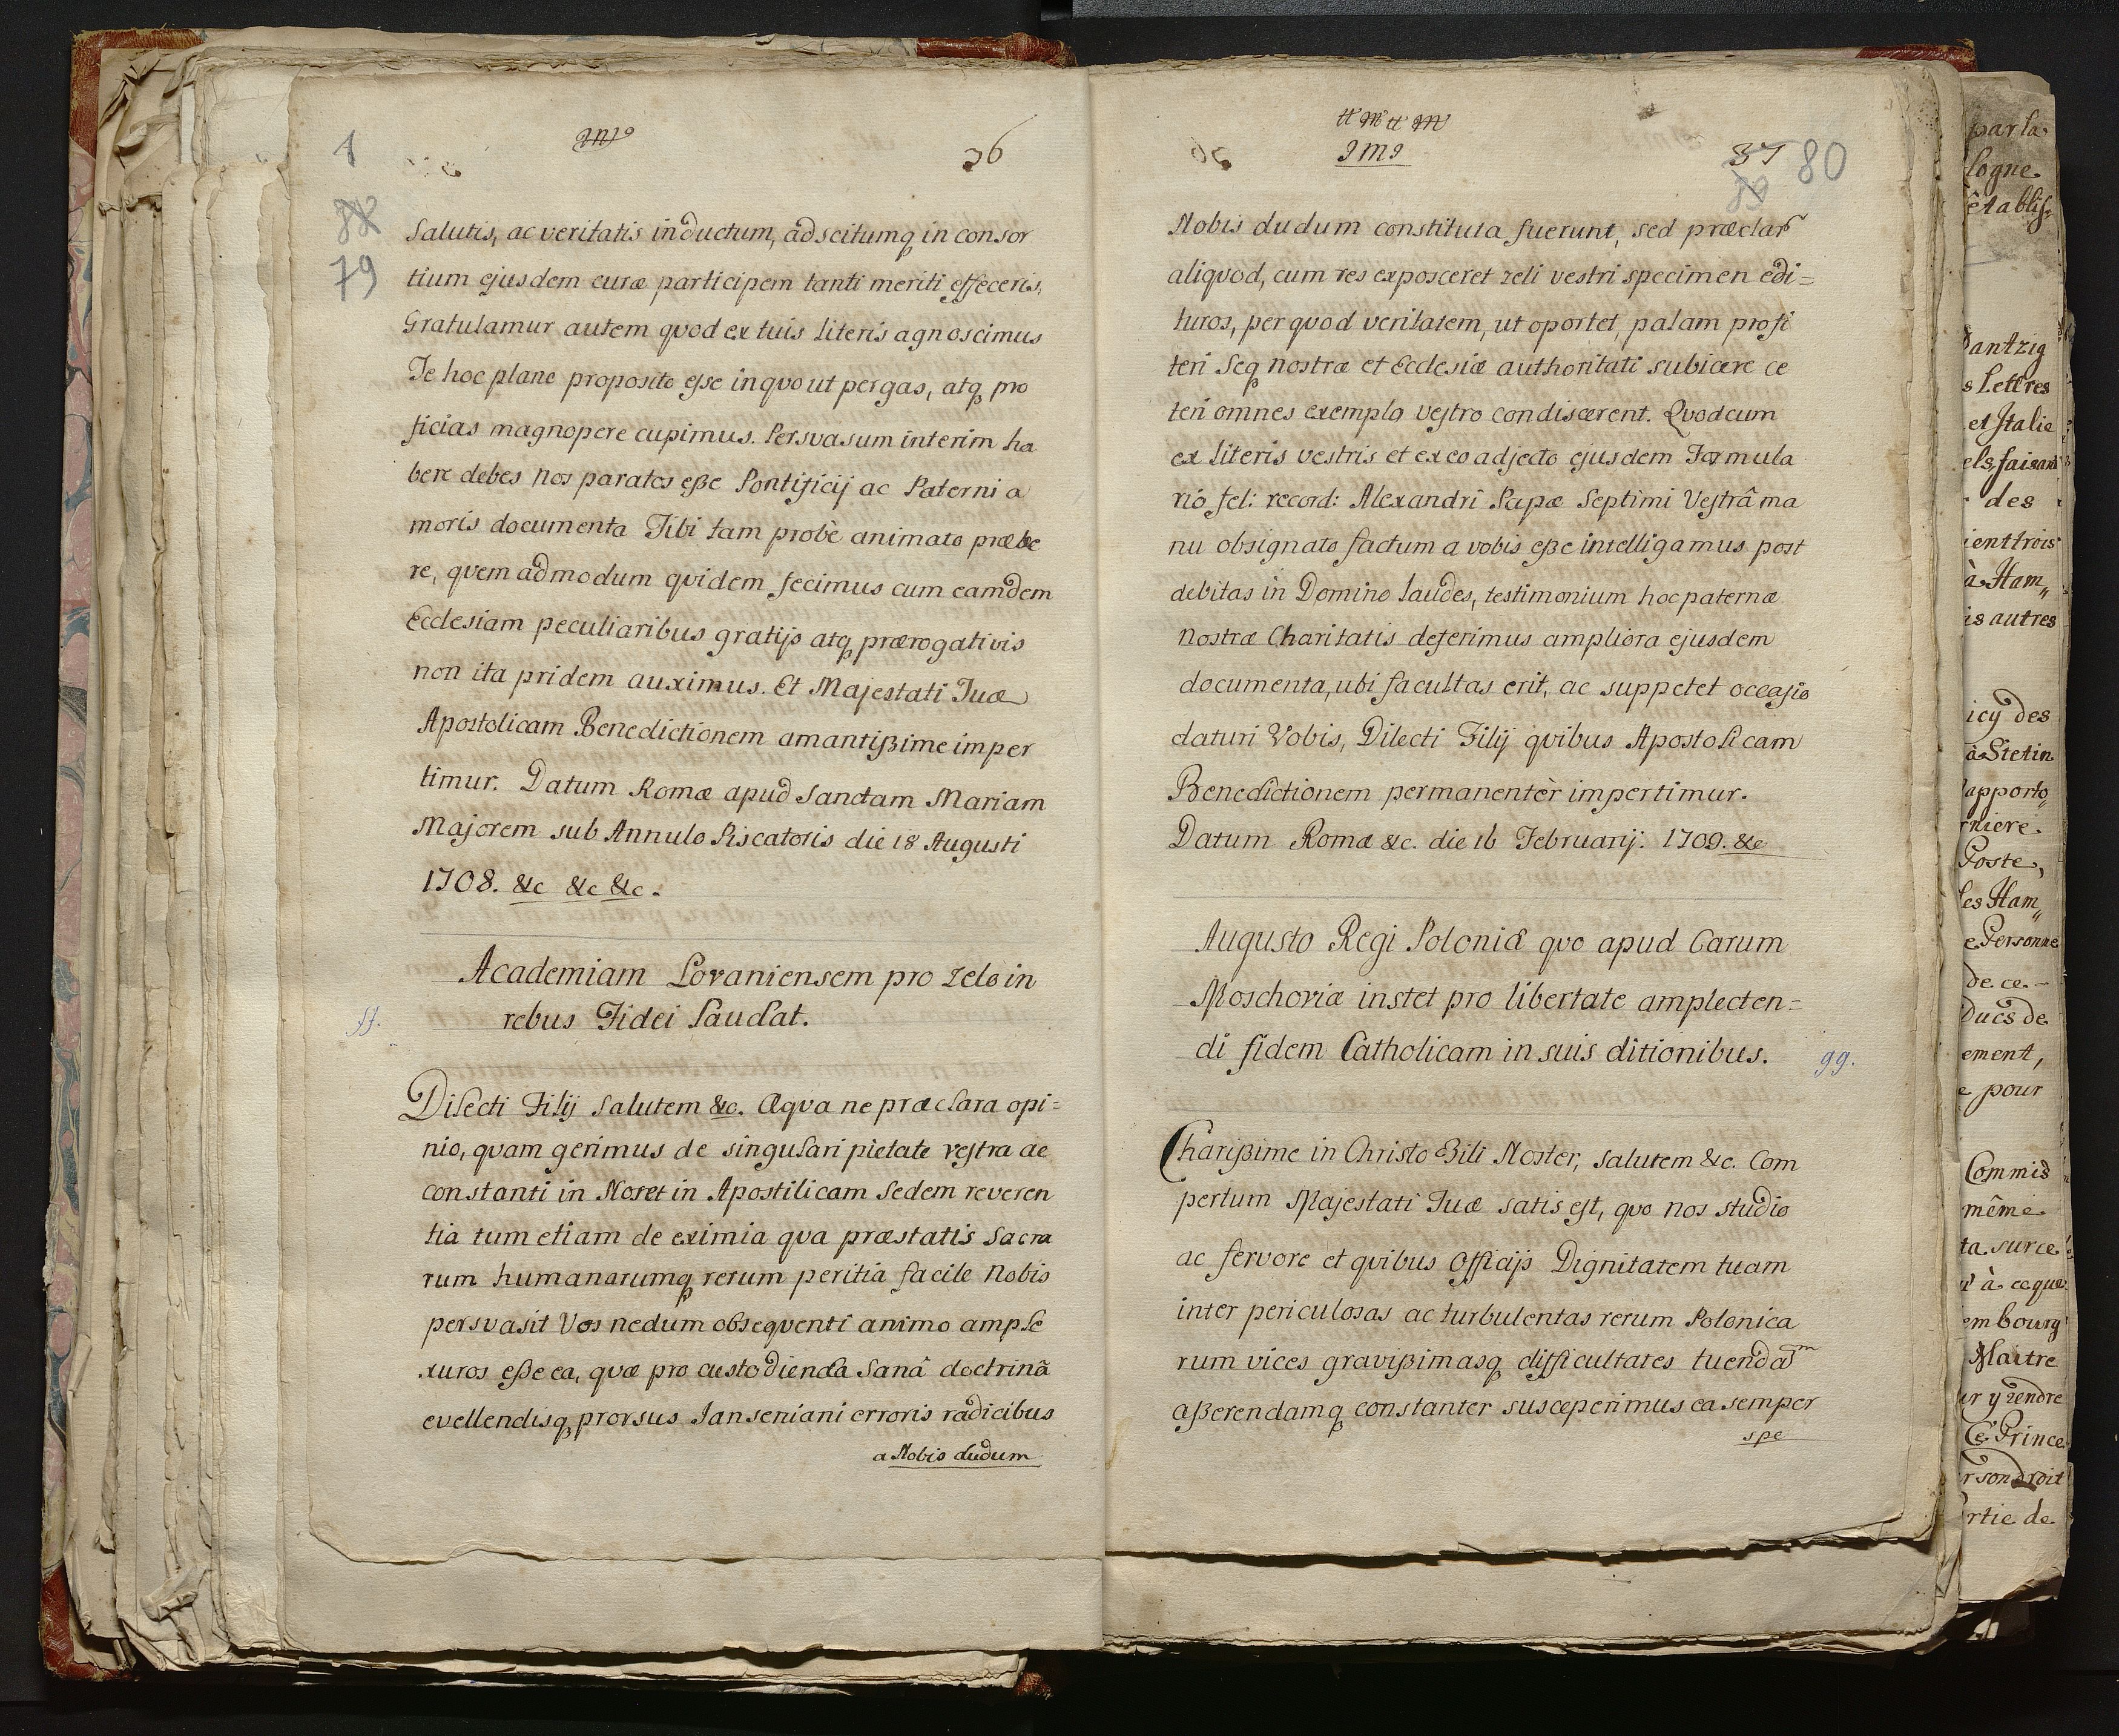 1
36
88
79
Salutis, ac veritatis inductum, adscitumq in consor
tium ejusdem curæ participem tanti meriti effeceris,
Gratulamur autem quod ex tuis literis agnoscimus
Te hoc plane proposito esse in quo ut pergas, atq pro
ficias magnopere cupimus. Persvasum interim ha
bere debes nos paratos eße Pontificij ac Paterni a
moris documenta Tibi tam probè animato præbe
re, quem admodum qvidem fecimus cum eamdem
Ecclesiam peculiaribus gratijs atq prærogativis
non ita pridem auximus. Et Majestati Tuæ
Apostolicam Benedictionem amantißime imper
timur. Datum Romæ apud Sanctam Mariam
Majorem sub Annulo Piscatoris die 18 Augusti
1708. &c &c &c.
Academiam Lovaniensem pro zelo in
rebus Fidei Laudat.
Dilecti Filij Salutem &c. Æqva ne præclara opi=
nio, qvam gerimus de singulari pietate vestra ac
constanti in Nos et in Apostilicam Sedem reveren
tia tum etiam de eximia qva præstatis Sacra
rum humanarumq rerum peritia facile Nobis
persvasit Vos nedum obseqventi animo ample
xuros eße ea, qvæ pro custodienda Sanâ doctrinâ
evellendisq prorsus Janseniani erroris radicibus
a Nobis dudum
JMJ
37
80
Nobis dudum constituta fuerunt, sed præclar
aliqvod, cum res exposceret zeli vestri specimen edi=
turos, per qvod veritatem, ut oportet, palam profi
teri Seq nostræ et Ecclesiæ authoritati subicere ce
teri omnes exemplo vestro condiscerent. Qvod cum
ex literis vestris et ex eo adjecto ejusdem Formula
rio fel: record: Alexandri Papæ Septimi Vestrâ ma
nu obsignato factum a vobis eße intelligamus post
debitas in Domino laudes, testimonium hoc paternæ
nostræ Charitatis deferimus ampliora ejusdem
documenta, ubi facultas erit, ac suppetet occasio
daturi Vobis, Dilecti Filij qvibus Apostolicam
Benedictionem permanentèr impertimur.
Datum Romæ &c. die 16 Februarij. 1709. &c
Augusto Regi Poloniæ qvo apud Carum
Moschoviæ instet pro libertate amplecten=
di fidem Catholicam in suis ditionibus.
99.
Charißime in Christo Fili Noster, Salutem &c. Com
pertum Majestati Tuæ satis est, qvo nos studio
ac fervore et qvibus Officijs Dignitatem tuam
inter periculosas ac turbulentas rerum Polonica
rum vices gravißimasq difficultates tuendam
aßerendamq constanter susceperimus ea semper
spe
par la
logne
établis=
Dantzig
s Lettres
et Italie
els, faisant
des
ient trois
à Ham„
is autres
icy des
à Stetin
apporto„
rniere.
Poste,
les Ham„
e Personne
de ce
Ducs de
ement,
e pour
Commis
même
ta surce
r à ce que
embourg
Maitre
ur y rendre
Ce Prince
r son droit
rtie de